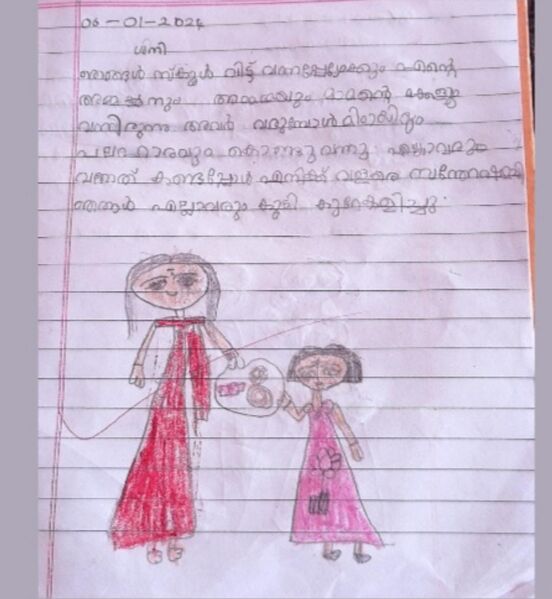 06-01-2024
ശനി
ഞങ്ങൾ സ്ക്കൂൾ വിട്ട് വന്നപ്പോഴേക്കും എന്റെ
അമ്മച്ചനും അമ്മമ്മയും മാമന്റെ മക്കളും
വന്നിരുന്നു അവർ വരുമ്പോൾ മിഠായിയും
പലഹാരവും കൊണ്ടു വന്നു എല്ലാവരും
വന്നത് കണ്ടപ്പോൾ എനിക്ക് വളരെ സന്തോഷമായി
ഞങ്ങൾ എല്ലാവരും കൂടി കുറേകളിച്ചു.